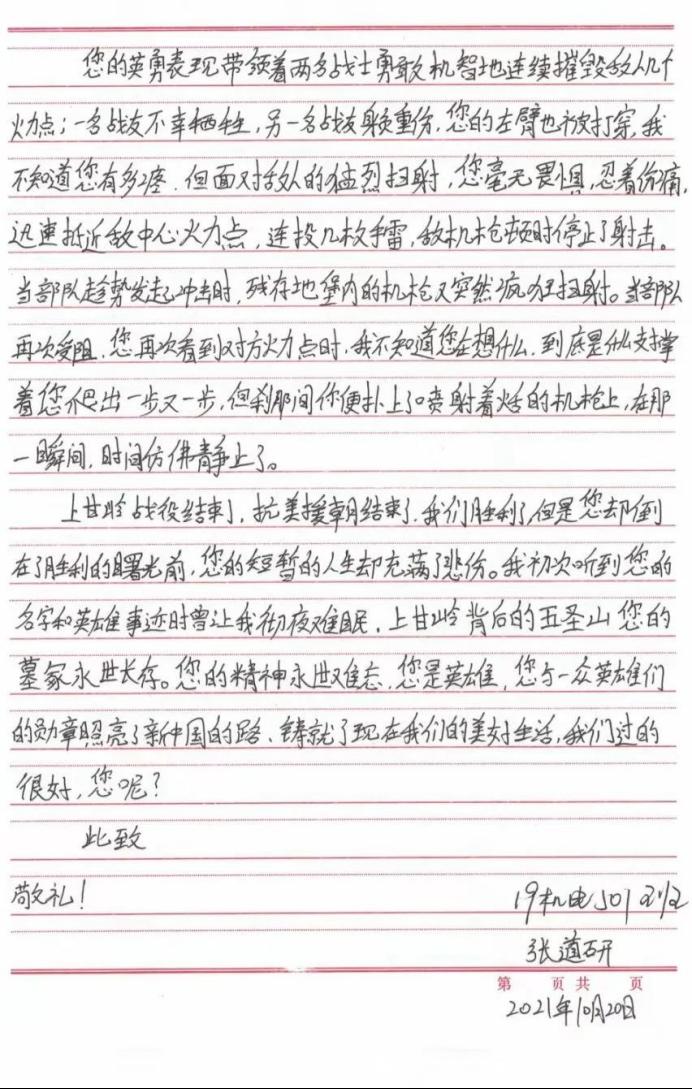 您的英勇表现带领着两名战士勇敢机智地连续摧毁敌人几个
火力点；一名战友不幸牺牲，另一名战友身负重伤，您的左臂也被打穿，我
不知道您有多疼，但面对敌人的猛烈扫射，您毫无畏惧，忍着伤痛，
迅速抵近敌中心火力点，连投几枚手雷，敌机枪顿时停止了射击。
当部队趁势发起冲击时，残存地堡内的机枪又突然疯狂扫射。当部队
再次受阻，您再次看到对方火力点时，我不知道您在想什么，到底是什么支撑
着您爬出一步又一步，但刹那间你便扑上了喷射着火舌的机枪上，在那
一瞬间，时间仿佛静止了。
上甘岭战役结束了，抗美援朝结束了，我们胜利了，但是您却倒
在了胜利的曙光前，您的短暂的人生却充满了悲伤。我初次听到您的
名字和英雄事迹时曾让我彻夜难眠，上甘岭背后的五圣山您的
墓冢永世长存。您的精神永世难忘，您是英雄，您与一众英雄们
的勋章照亮了新中国的路、铸就了现在我们的美好生活，我们过的
很好，您呢？
此致
敬礼！
19机电501班
张道研
第 页 共 页
2021年10月20日